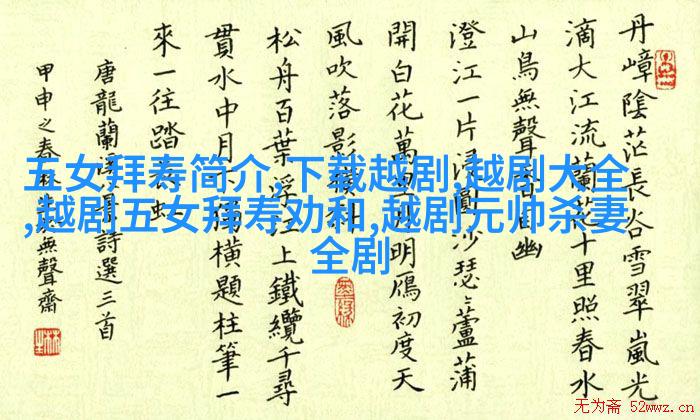 丹嶂陰茫長谷雪翠嵐光
滴大江流蘭花十里照春水
山鳥無聲 幽
澄江一片 圓沙瑟々蘆蒲
開白花萬 明鴈初度天
風吹落影
松舟百葉浮 上鐵纜千尋
貫水中月 橫題柱筆一
來一往踏
唐龍蘭 詩選三首
甲申之春 無聲齋
五女拜寿简介,下载越剧,越剧大全
,越剧五女拜寿劝和,越剧元帅杀妻
全剧
无为斋 52wwz.cn